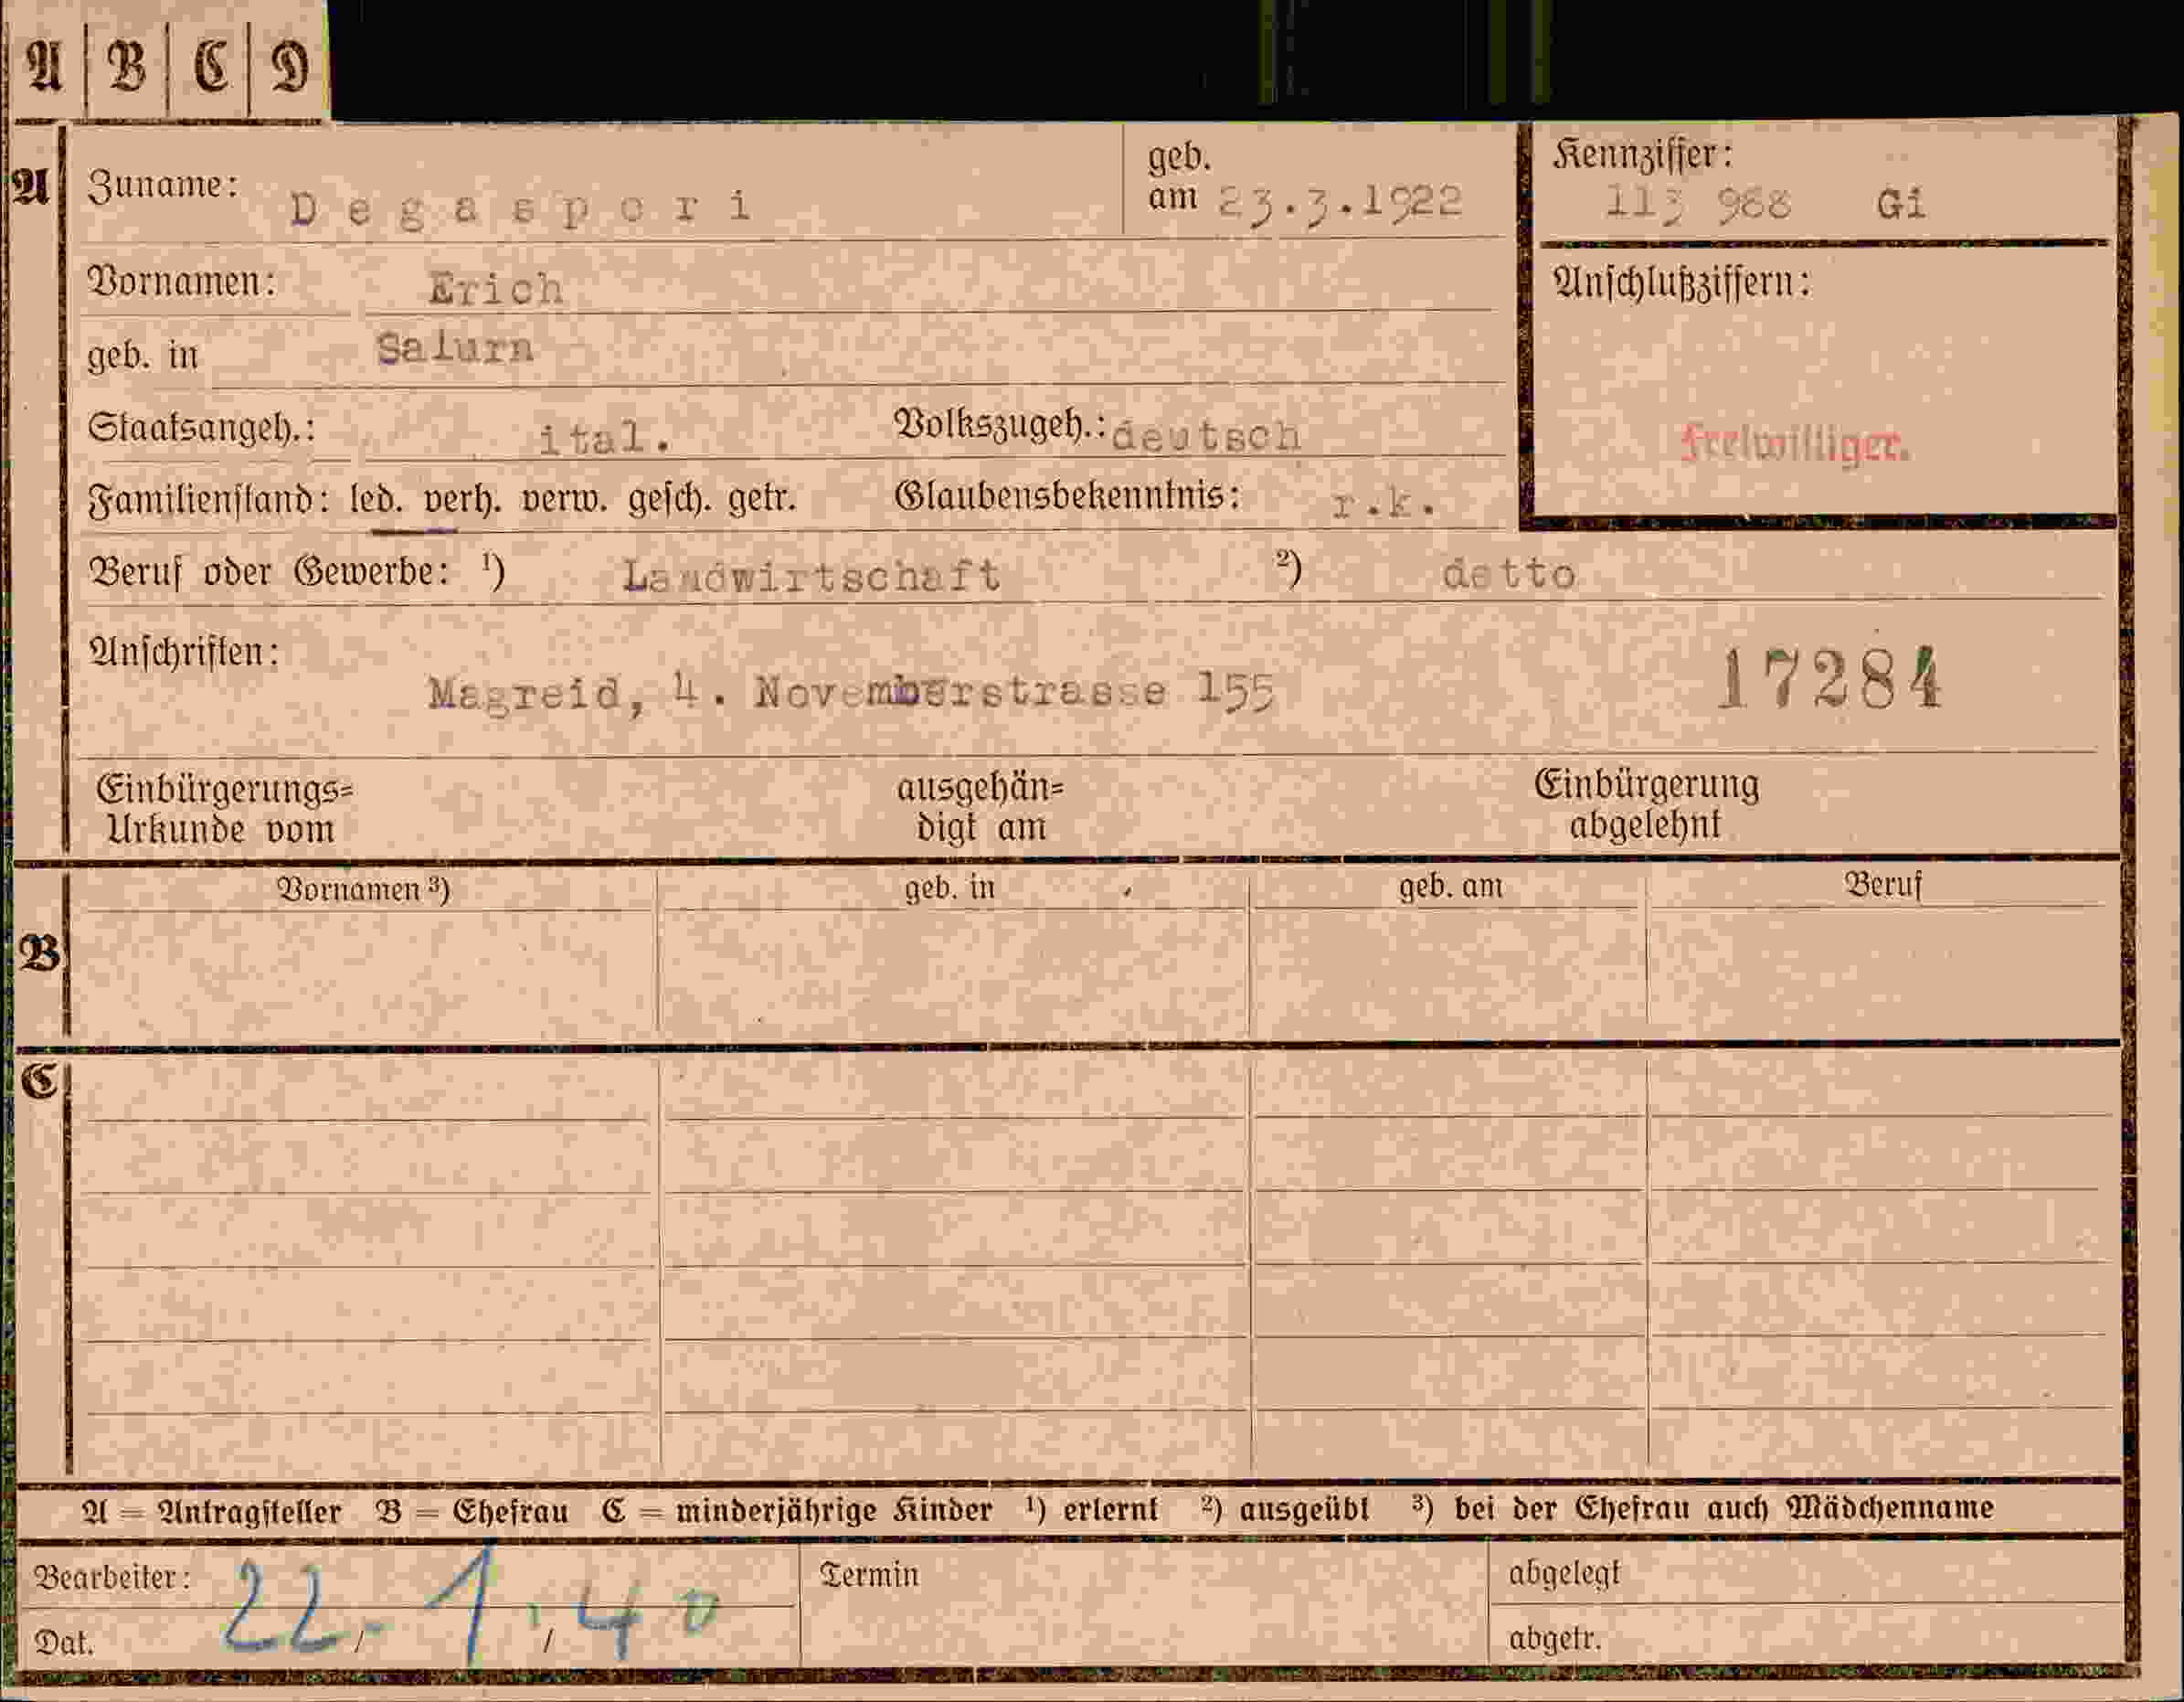 A B C D
A Zuname: Degasperi geb. am 23.3.1922 Kennziffer: 113 988 Gi
Vornamen: Erich Anschlußziffern:
geb. in Salurn
Staatsangeh.: ital. Volkszugeh.: deutsch Freiwilliger.
Familienstand: led. verh. verw. gesch. getr. Glaubensbekenntnis: r.k.
Beruf oder Gewerbe: ¹) Landwirtschaft ²) detto
Anschriften: 17284
Magreid, 4. Novemberstrasse 155
Einbürgerungs= ausgehän= Einbürgerung
Urkunde vom digt am abgelehnt
Vornamen ³) geb. in geb. am Beruf
B
C
A = Antragsteller B = Ehefrau C = minderjährige Kinder ¹) erlernt ²) ausgeübt ³) bei der Ehefrau auch Mädchenname
Bearbeiter: Termin abgelegt
22. 1. 40
Dat. / / abgetr.